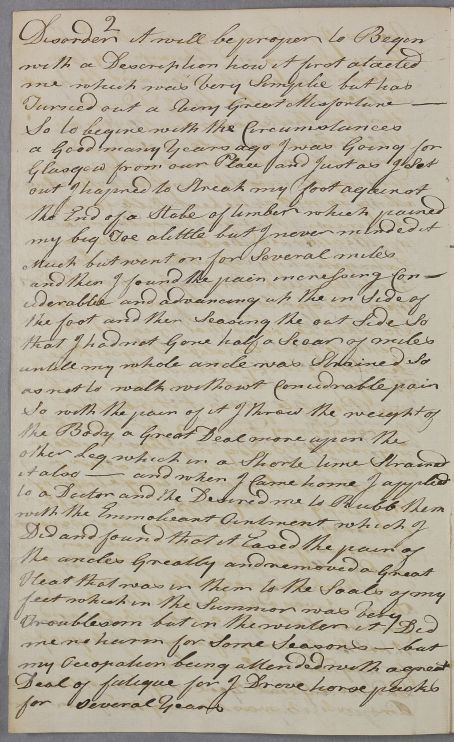 2
Disorder it will be proper to Begen
with a Description how it first atacted
me which was Very Simplie but has
Turned out a Very Great Misfortune —
So to begine with the Circumstances
a Good many Years ago I was Going for
Glasgow from our Place and Just as I Sot
out I hapned to Streak my foot against
the End of a Stabe of timber which pained
my big Toe a little but I never minded it
Much but went on for Several miles
and then I found the pain incressing Con-
iderable and advancing up the in Side of
the foot and then Seasing the out Side So
that I had not Gone half a Scoar of miles
untile my whole ancle was Strained So
as not to walk without Considrable pain
So with the pain of it I throw the weight of
the Body a Great Deal more upon the
other Leg which in a Shorte time Strained
it also — and when I Came home I applied
to a Doctor and the Desired me to Rubb them
with the Emmolieant Ointment which I
Did and found that it Eased the pain of
the ancles Greatly and removed a Great
Heat that was in them to the Soals of my
feet which in the Summor was Very
Troublesom but in the winter it Did
me no harm for Some Seasons — but
my Occopation being attended with a great
Deal of futique for I Drove horse packs
for Several Years